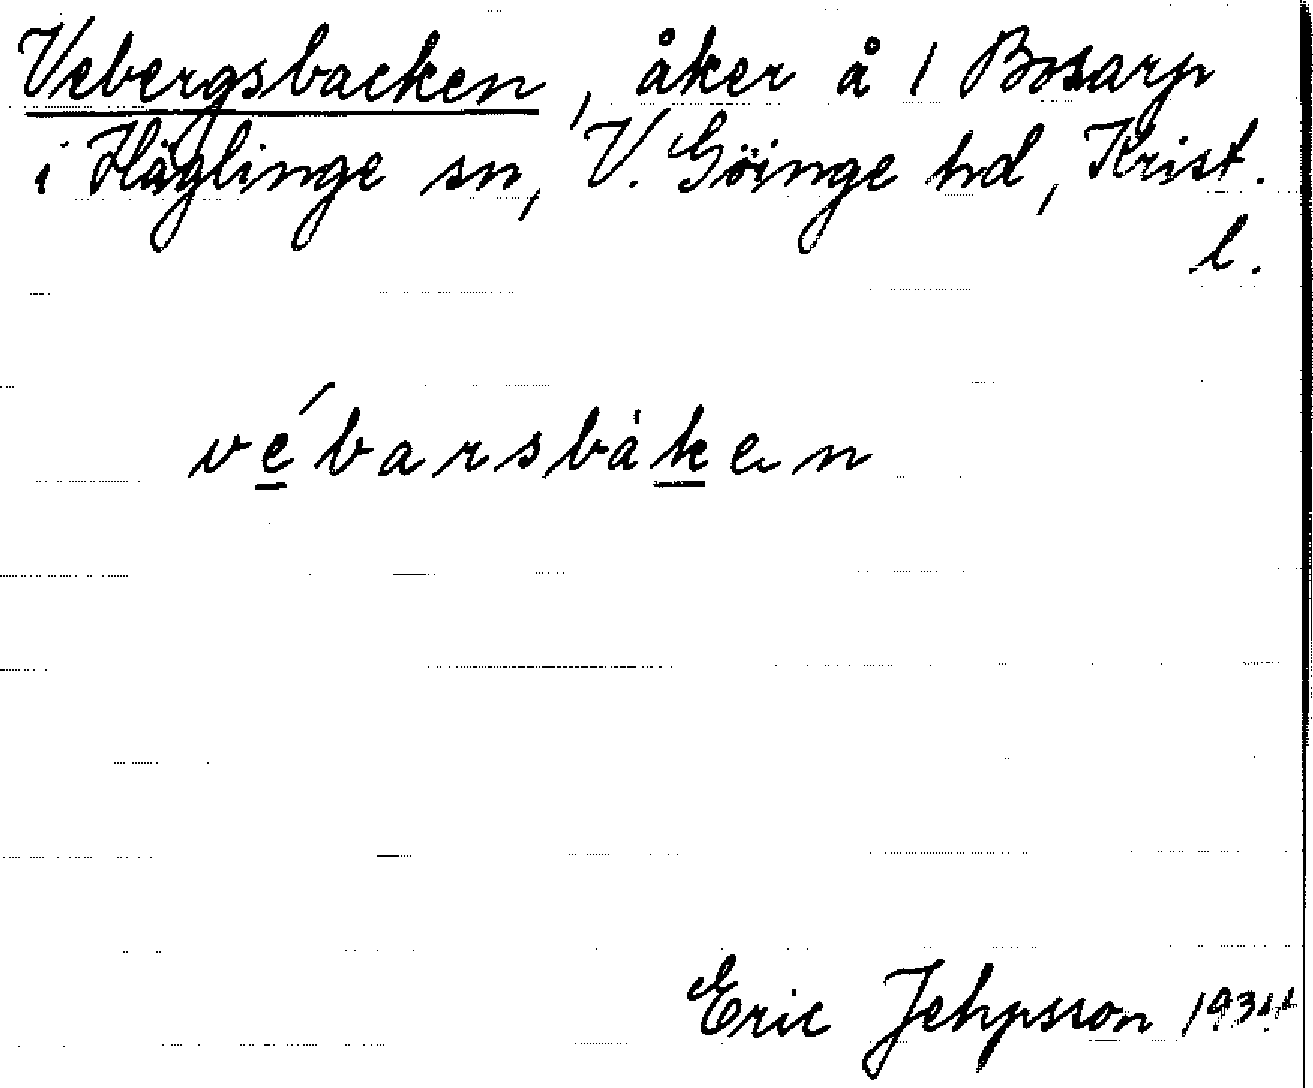 Vebergsbacken, åker å 1 Bosarp
i Häglinge sn, V. Göinge hd, Krist.
l.
vé̱barsbàḵen
Eric Jehpsson 1934